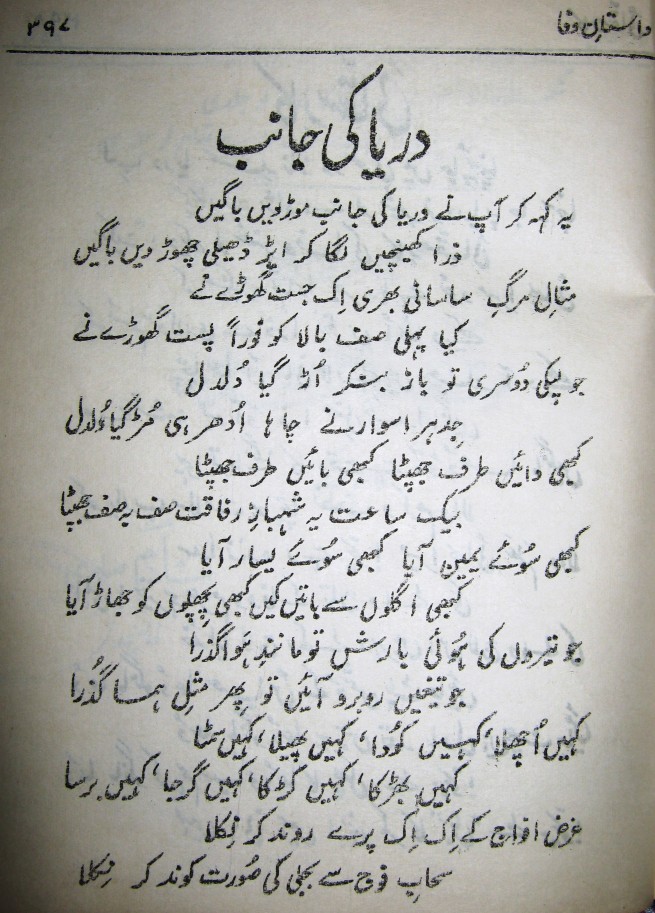 داستانِ وفا
۳۹۷
دریا کی جانب
یہ کہہ کر آپ نے دریا کی جانب موڑ دیں باگیں
ذرا کھینچیں لگا کر ایڑ ڈھیلی چھوڑ دیں باگیں
مثالِ مرگِ ساسانی بھری اِک جست گھوڑے نے
کیا پہلی صف بالا کو فوراً پست گھوڑے نے
جو لپکی دُوسری تو باز بنکر اُڑ گیا دُلدل
جِدہر اسوار نے چاہا اُدھر ہی مُڑ گیا دُلدل
کبھی دائیں طرف جھپٹا کبھی بائیں طرف جھپٹا
بیک ساعت یہ شہبازِ رفاقت صف بہ صف جھپٹا
کبھی سُوئے یمین آیا کبھی سُوئے یسار آیا
کبھی اگلوں سے باتیں کیں کبھی پچھلوں کو جھاڑ آیا
جو تیروں کی ہُوئی بارش تو مانندِ ہَوا گذرا
جو تیغیں روبرو آئیں تو پھر مثلِ ہما گُذرا
کہیں اُچھلا، کہیں کُودا، کہیں پھیلا، کہیں سمٹا
کہیں بھڑکا، کہیں کڑکا، کہیں گرجا، کہیں برسا
غرض افواج کے اِک اِک پرے روند کر نِکلا
سحابِ فوج سے بجلی کی صُورت کوند کر نِکلا